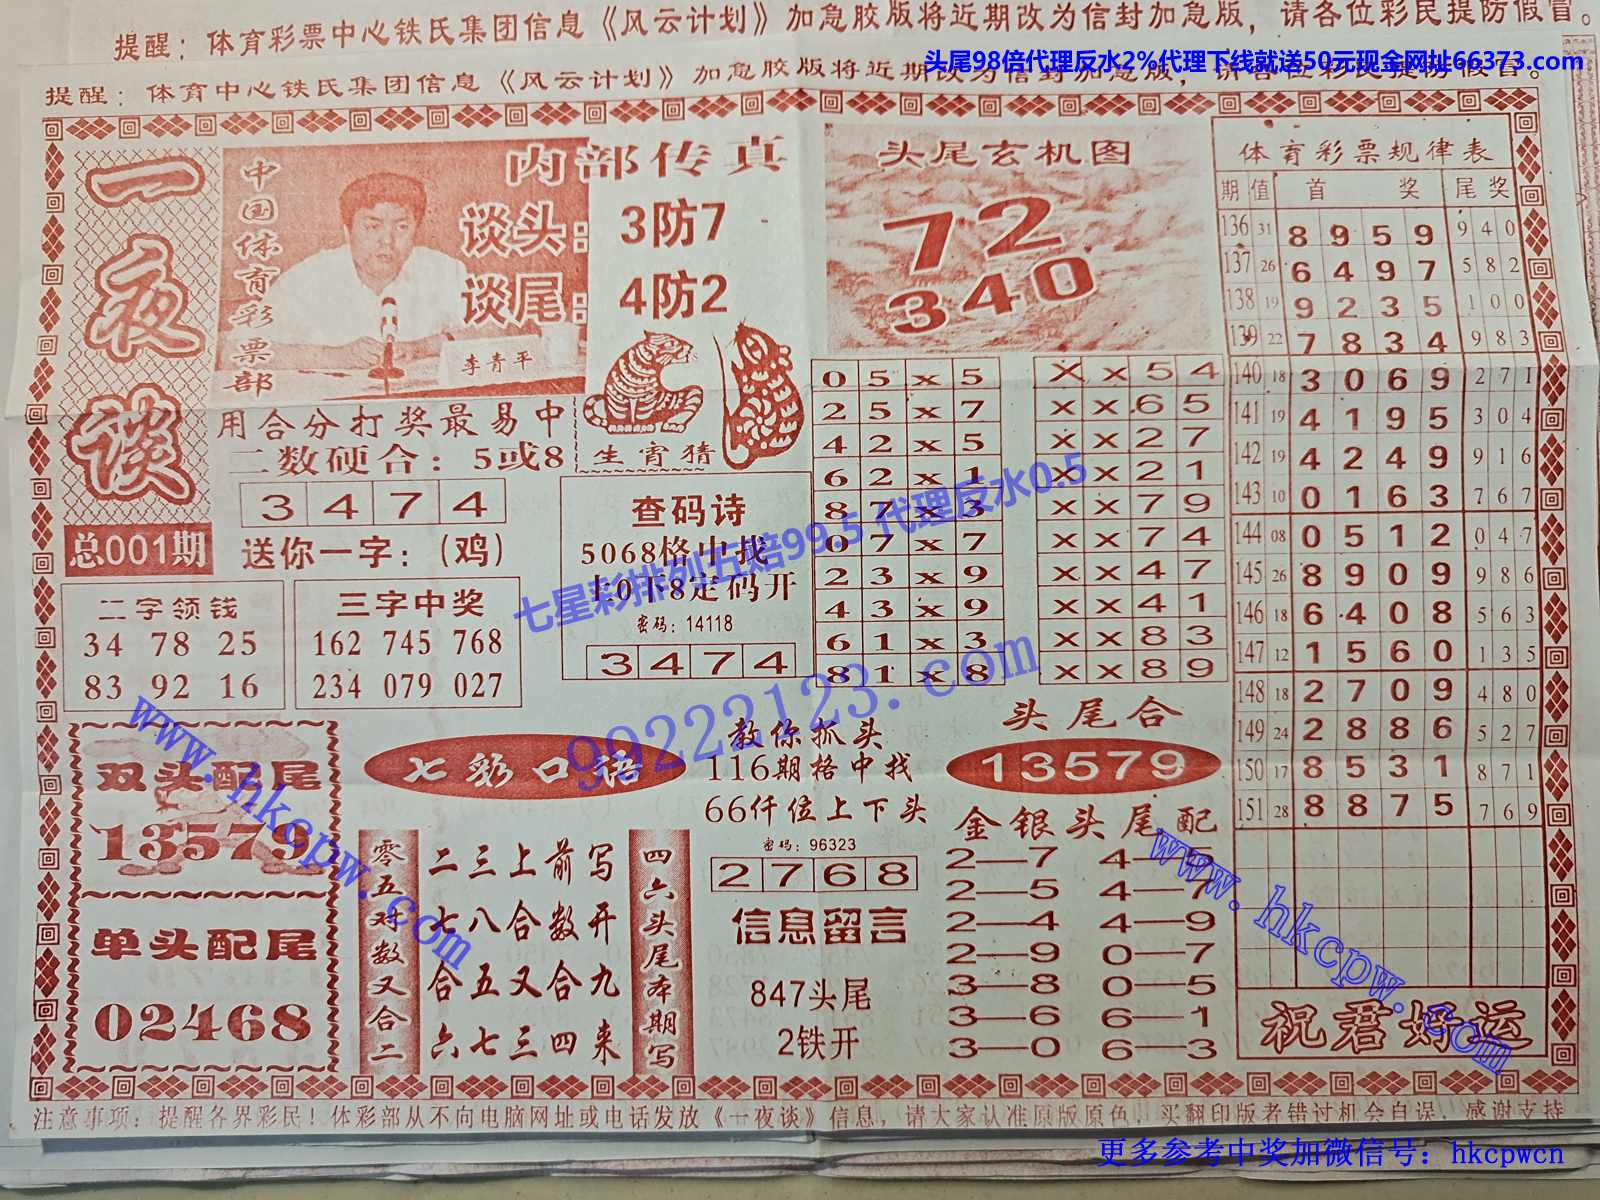 提醒：体育彩票中心铁氏集团信息《风云计划》加急胶版将近期改为信封加急版，请各位彩民提防假冒。
头尾98倍代理反水2%代理下线就送50元现金网址66373.com
提醒：体育中心铁氏集团信息《风云计划》加急胶版将近期改为信封加急版，请各位彩民提防假冒。
一夜谈
总001期
中国体育彩票部
李青平
内部传真
谈头：3防7
谈尾：4防2
生宵猜
用合分打奖最易中
二数硬合：5或8
3 4 7 4
送你一字：(鸡)
二字领钱
34 78 25
83 92 16
三字中奖
162 745 768
234 079 027
查码诗
5068格中找
上0下8定码开
密码：14118
3 4 7 4
头尾玄机图
72
340
0 5 x 5
2 5 x 7
4 2 x 5
6 2 x 1
8 7 x 3
0 7 x 7
2 3 x 9
4 3 x 9
6 1 x 3
8 1 x 8
x x 5 4
x x 6 5
x x 2 7
x x 2 1
x x 7 9
x x 7 4
x x 4 7
x x 4 1
x x 8 3
x x 8 9
体育彩票规律表
期 值 首奖 尾奖
136 31 8 9 5 9 9 4 0
137 26 6 4 9 7 5 8 2
138 19 9 2 3 5 1 0 0
139 22 7 8 3 4 9 8 3
140 18 3 0 6 9 2 7 1
141 19 4 1 9 5 3 0 4
142 19 4 2 4 9 9 1 6
143 10 0 1 6 3 7 6 7
144 08 0 5 1 2 0 4 7
145 26 8 9 0 9 9 8 6
146 18 6 4 0 8 5 6 3
147 12 1 5 6 0 1 3 5
148 18 2 7 0 9 4 8 0
149 24 2 8 8 6 5 2 7
150 17 8 5 3 1 8 7 1
151 28 8 8 7 5 7 6 9
祝君好运
双头配尾
13579
单头配尾
02468
七彩口语
零五对数又合二
二三上前写
七八合数开
合五又合九
六七三四来
四六头尾本期写
教你抓头
116期格中找
66仟位上下头
密码：96323
2 7 6 8
信息留言
847头尾
2铁开
头尾合
13579
金银头尾配
2—7 4—5
2—5 4—7
2—4 4—9
2—9 0—7
3—8 0—5
3—6 6—1
3—0 6—3
七星彩排列五赔99.5 代理反水0.5
99222123.com
www.hkcpw.com
www.hkcpw.com
注意事项：提醒各界彩民！体彩部从不向电脑网址或电话发放《一夜谈》信息，请大家认准原版原色，买翻印版者错过机会自误，感谢支持
更多参考中奖加微信号：hkcpwcn